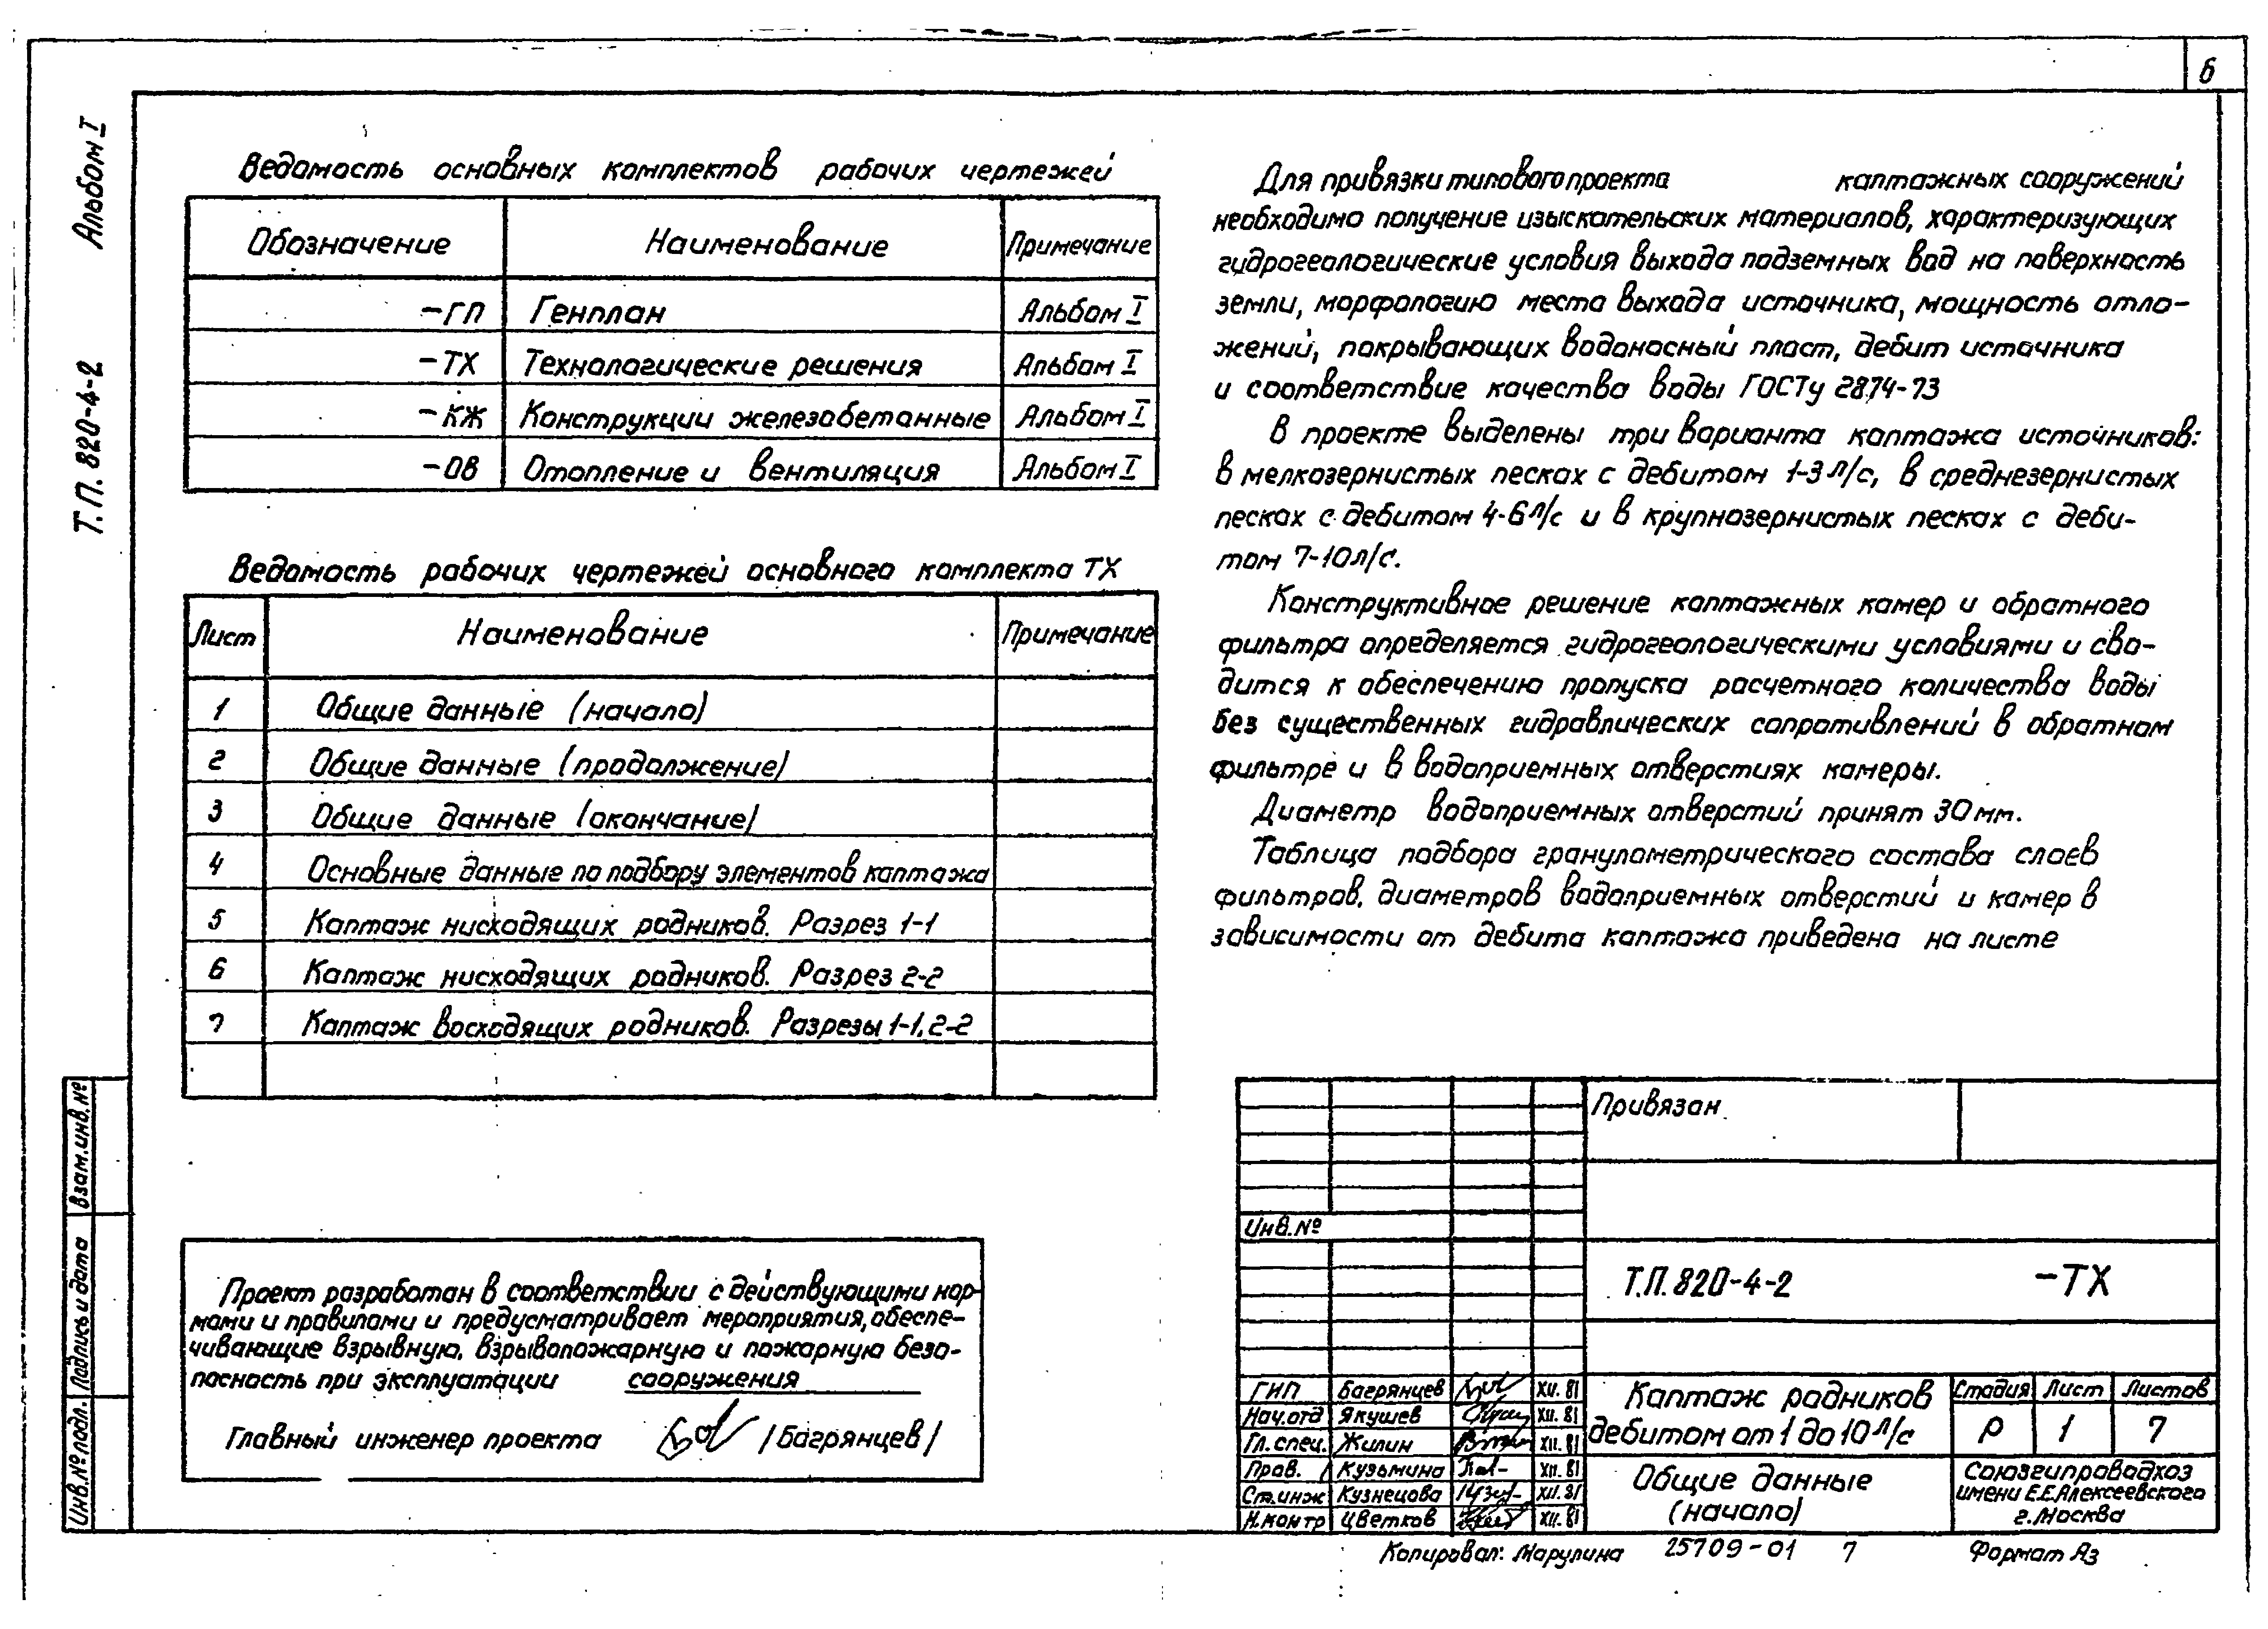 6
Альбом I
Т.П. 820-4-2
Ведомость основных комплектов рабочих чертежей
Обозначение Наименование Примечание
-ГП Генплан Альбом I
-ТХ Технологические решения Альбом I
-КЖ Конструкции железобетонные Альбом I
-ОВ Отопление и вентиляция Альбом I
Ведомость рабочих чертежей основного комплекта ТХ
Лист Наименование Примечание
1 Общие данные (начало)
2 Общие данные (продолжение)
3 Общие данные (окончание)
4 Основные данные по подбору элементов каптажа
5 Каптаж нисходящих родников. Разрез 1-1
6 Каптаж нисходящих родников. Разрез 2-2
7 Каптаж восходящих родников. Разрезы 1-1, 2-2
Проект разработан в соответствии с действующими нор-
мами и правилами и предусматривает мероприятия, обеспе-
чивающие взрывную, взрывопожарную и пожарную безо-
пасность при эксплуатации сооружения
Главный инженер проекта /Багрянцев/
Для привязки типового проекта каптажных сооружений
необходимо получение изыскательских материалов, характеризующих
гидрогеологические условия выхода подземных вод на поверхность
земли, морфологию места выхода источника, мощность отло-
жений, покрывающих водоносный пласт, дебит источника
и соответствие качества воды ГОСТу 2874-73
В проекте выделены три варианта каптажа источников:
в мелкозернистых песках с дебитом 1-3 л/с, в среднезернистых
песках с дебитом 4-6 л/с и в крупнозернистых песках с деби-
том 7-10 л/с.
Конструктивное решение каптажных камер и обратного
фильтра определяется гидрогеологическими условиями и сво-
дится к обеспечению пропуска расчетного количества воды
без существенных гидравлических сопротивлений в обратном
фильтре и в водоприемных отверстиях камеры.
Диаметр водоприемных отверстий принят 30 мм.
Таблица подбора гранулометрического состава слоев
фильтров, диаметров водоприемных отверстий и камер в
зависимости от дебита каптажа приведена на листе
Привязан
Инв.№
Т.П. 820-4-2 -ТХ
ГИП Багрянцев XII.81
Нач.отд Якушев XII.81
Гл.спец. Жилин XII.81
Пров. Кузьмина XII.81
Ст.инж Кузнецова XII.81
Н.контр Цветков XII.81
Каптаж родников
дебитом от 1 до 10 л/с
Стадия Лист Листов
Р 1 7
Общие данные
(начало)
Союзгипроводхоз
имени Е.Е.Алексеевского
г.Москва
Взам.инв.№
Подпись и дата
Инв.№ подл.
Копировал: Марулина 25709-01 7 Формат А3